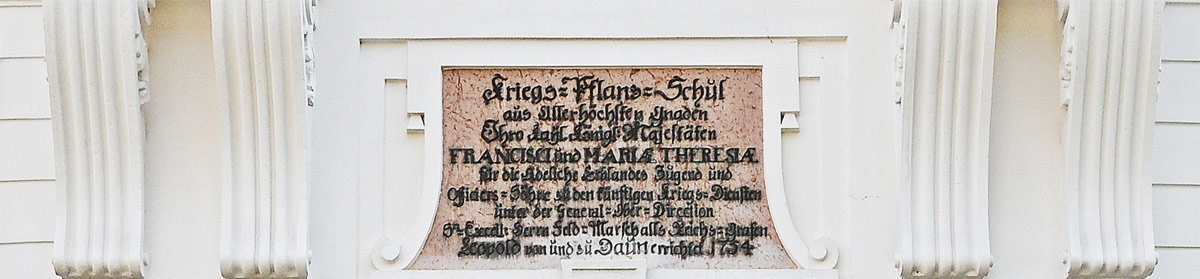 Kriegs=Pflans=Schůl
aůs Allerhöchsten Gnaden
Ihro Kaÿl. Königl. Majestäten
FRANCISCI ůnd MARIÆ THERESIÆ
für die Adeliche Erblandes Jůgend und
Officiers=Söhne zů den künftigen Kriegs=Diensten
ůnter der General=Ober=Direction
Sr. Excell: Herrn Feld=Marschalls Reichs=Grafen
Leopold von und zů Daůn errichtet 1754